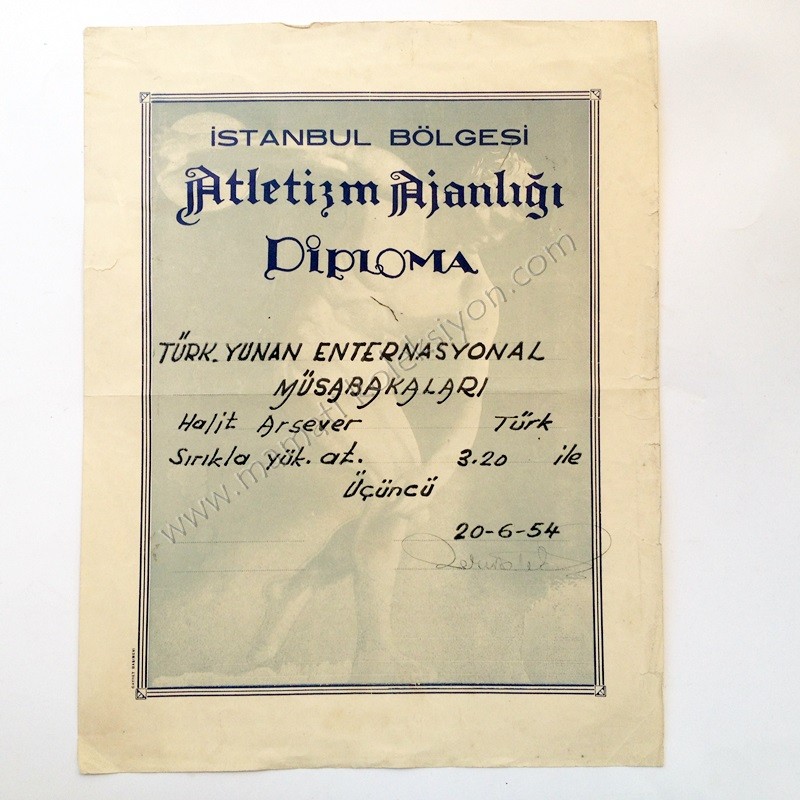 İSTANBUL BÖLGESİ
Atletizm Ajanlığı
DİPLOMA
TÜRK.YUNAN ENTERNASYONAL
MÜSABAKALARI
Halit Arsever Türk
Sırıkla yük. at. 3.20 ile
Üçüncü
20-6-54
www.mamutkoleksiyon.com